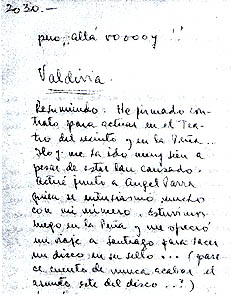 2030.-
pero, allá vooooy!!
Valdivia
Resumiendo: He firmado con-
trato para actuar en el Tea-
tro del recinto y en la Peña..
Hoy me ha ido muy bien a
pesar de estar tan cansado.
Actué junto a Angel Parra
quien se entusiasmó mucho
con mi número. Estuvimos
luego en la Peña y me ofreció
un viaje a Santiago para hacer
un disco en su sello... (pare-
ce cuento de nunca acabar el
asunto este del disco...?)